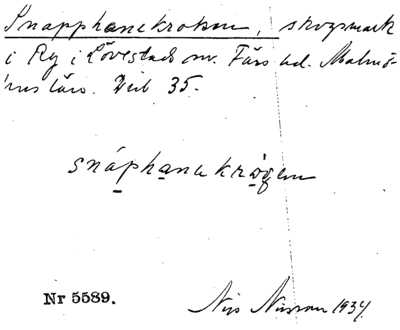 Snapphanekroken, skogsmark
i Ry i Lövestads sn. Färs hd. Malmö-
hus län. Bl. 35.
snáphanakrogen
Nr 5589.
Nils Nilsson 1934.